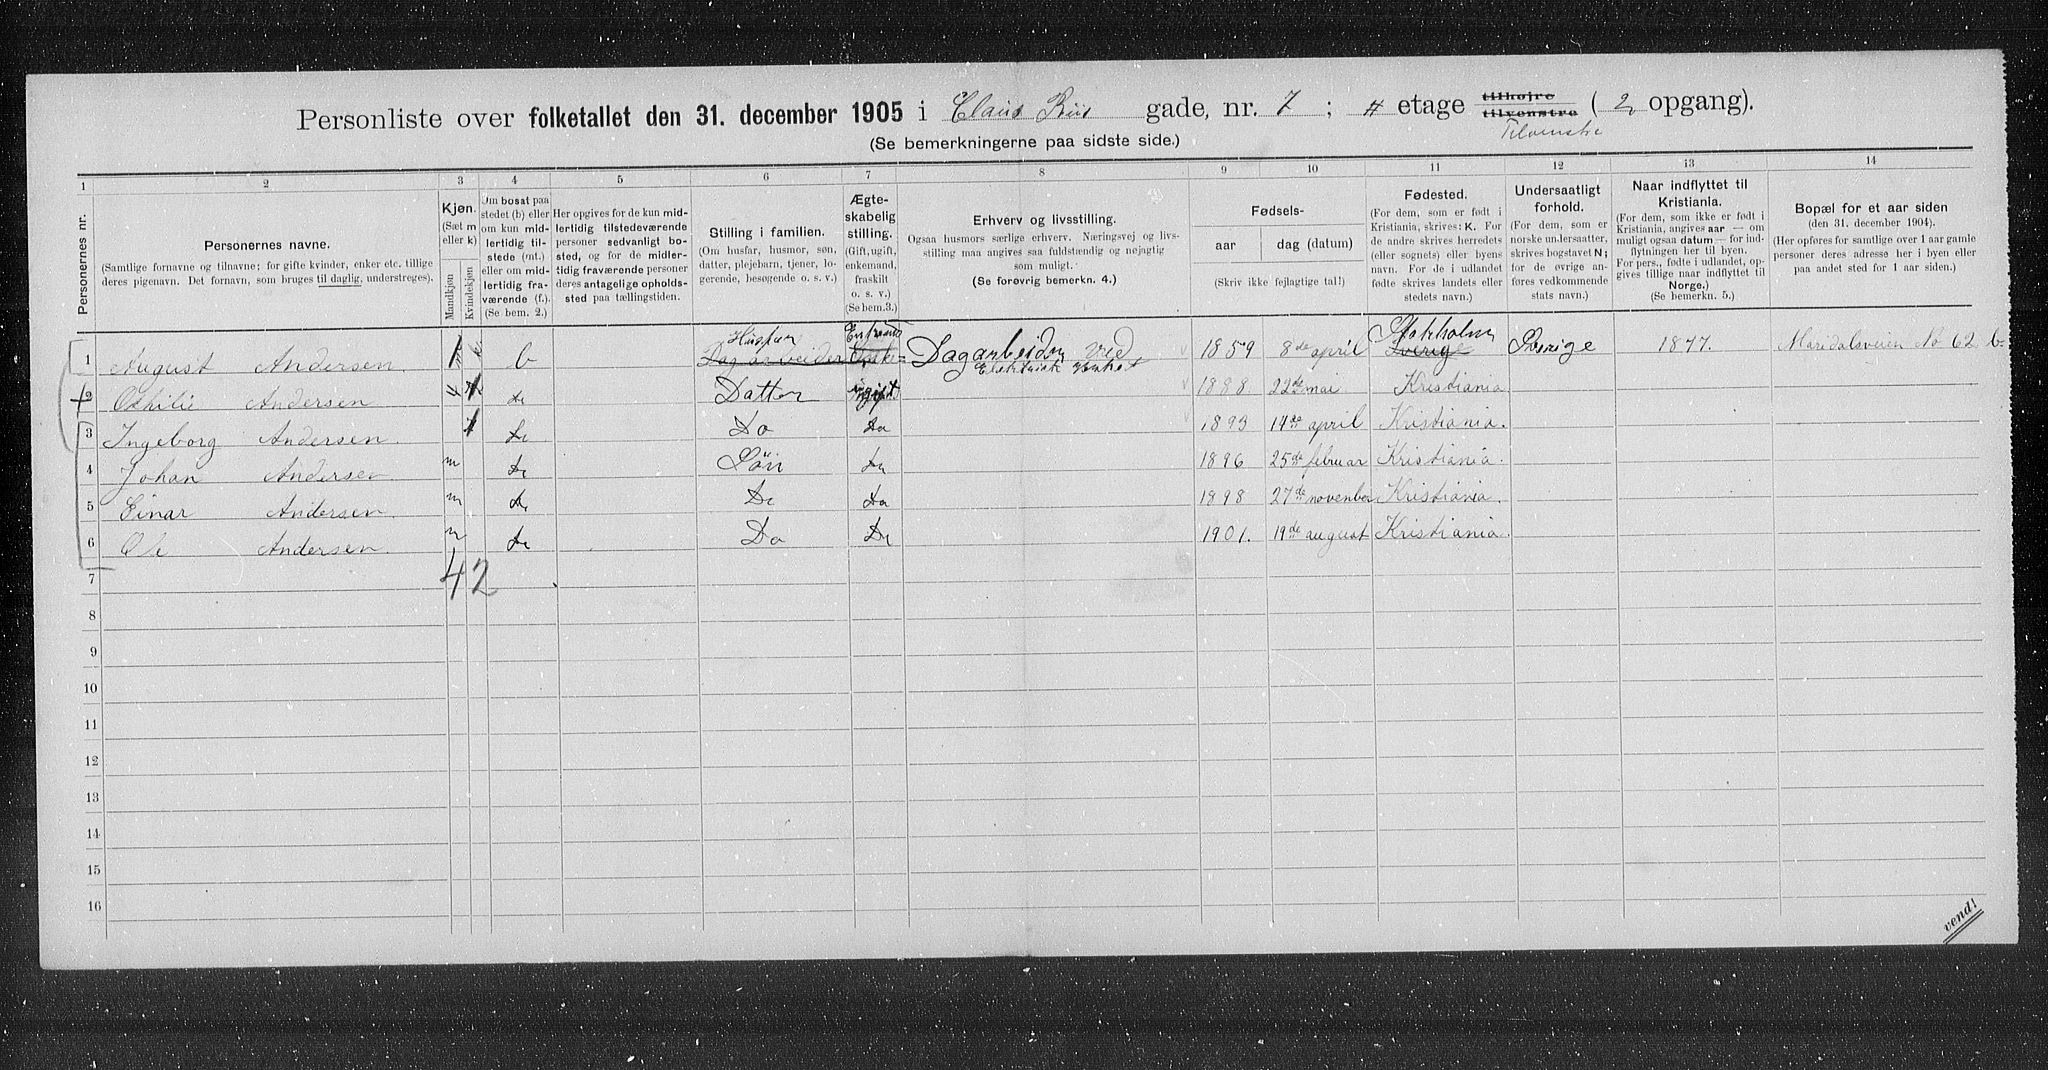 Personliste over folketallet den 31. december 1905 i Claus Riis gade, nr. 7 ; 4 etage tilhøjre tilvenstre ( 2 opgang).
Tilvenstre
(Se bemerkningerne paa sidste side.)
1 2 3 4 5 6 7 8 9 10 11 12 13 14
Personernes nr.
Personernes navne.
(Samtlige fornavne og tilnavne; for gifte kvinder, enker etc. tillige
deres pigenavn. Det fornavn, som bruges til daglig, understreges).
Kjøn.
(Sæt m
eller k)
Mandkjøn
Kvindekjøn
Om bosat paa
stedet (b) eller
om kun mid-
lertidig til-
stede (mt.)
eller om mid-
lertidig fra-
værende (f.).
(Se bem. 2.)
Her opgives for de kun mid-
lertidig tilstedeværende
personer sedvanlig bo-
sted, og for de midler-
tidig fraværende personer
deres antagelige opholds-
sted paa tællingstiden.
Stilling i familien.
(Om husfar, husmor, søn,
datter, plejebarn, tjener, lo-
gerende, besøgende o. s. v.)
Ægte-
skabelig
stilling.
(Gift, ugift,
enkemand,
fraskilt
o. s. v.)
(Se bem.3.)
Erhverv og livsstilling.
Ogsaa husmors særlige erhverv. Næringsvej og livs-
stilling maa angives saa fuldstændig og nøjagtig
som muligt.
(Se forøvrig bemerkn. 4.)
Fødsels-
aar dag (datum)
(Skriv ikke fejlagtige tal!)
Fødested.
(For dem, som er født i
Kristiania, skrives: K. For
de andre skrives herredets
(eller sognets) eller byens
navn. For de i udlandet
fødte skrives landets eller
stedets navn.)
Undersaatligt
forhold.
(For dem, som er
norske undersaatter,
skrives bogstavet N;
for de øvrige an-
føres vedkommende
stats navn.)
Naar indflyttet til
Kristiania.
(For dem, som ikke er født i
Kristiania, angives aar — om
muligt ogsaa datum — for ind-
flytningen her til byen.
For pers., fødte i udlandet, op-
gives tillige naar indflyttet til
Norge.)
(Se bemerkn. 5.)
Bopæl for et aar siden
(den 31. december 1904).
(Her opføres for samtlige over 1 aar gamle
personer deres adresse her i byen eller
paa andet sted for 1 aar siden.)
Husfar Stokholm
1 August Andersen b Dagarbeider Dagarbeider ved 1859 8de april Sverige Sverige 1877. Maridalsveien No 62 b
Elektrisk
2 Othilie Andersen do Datter ugift 1888 22de mai Kristiania
3 Ingeborg Andersen do Do Do 1893 14de april Kristiania.
4 Johan Andersen m do Søn Do 1896 25de februar Kristiania.
5 Einar Andersen m do Do Do 1898 27de november Kristiania.
6 Ole Andersen m do Do Do 1901. 19de august Kristiania.
7 4 2
8
9
10
11
12
13
14
15
16
vend!